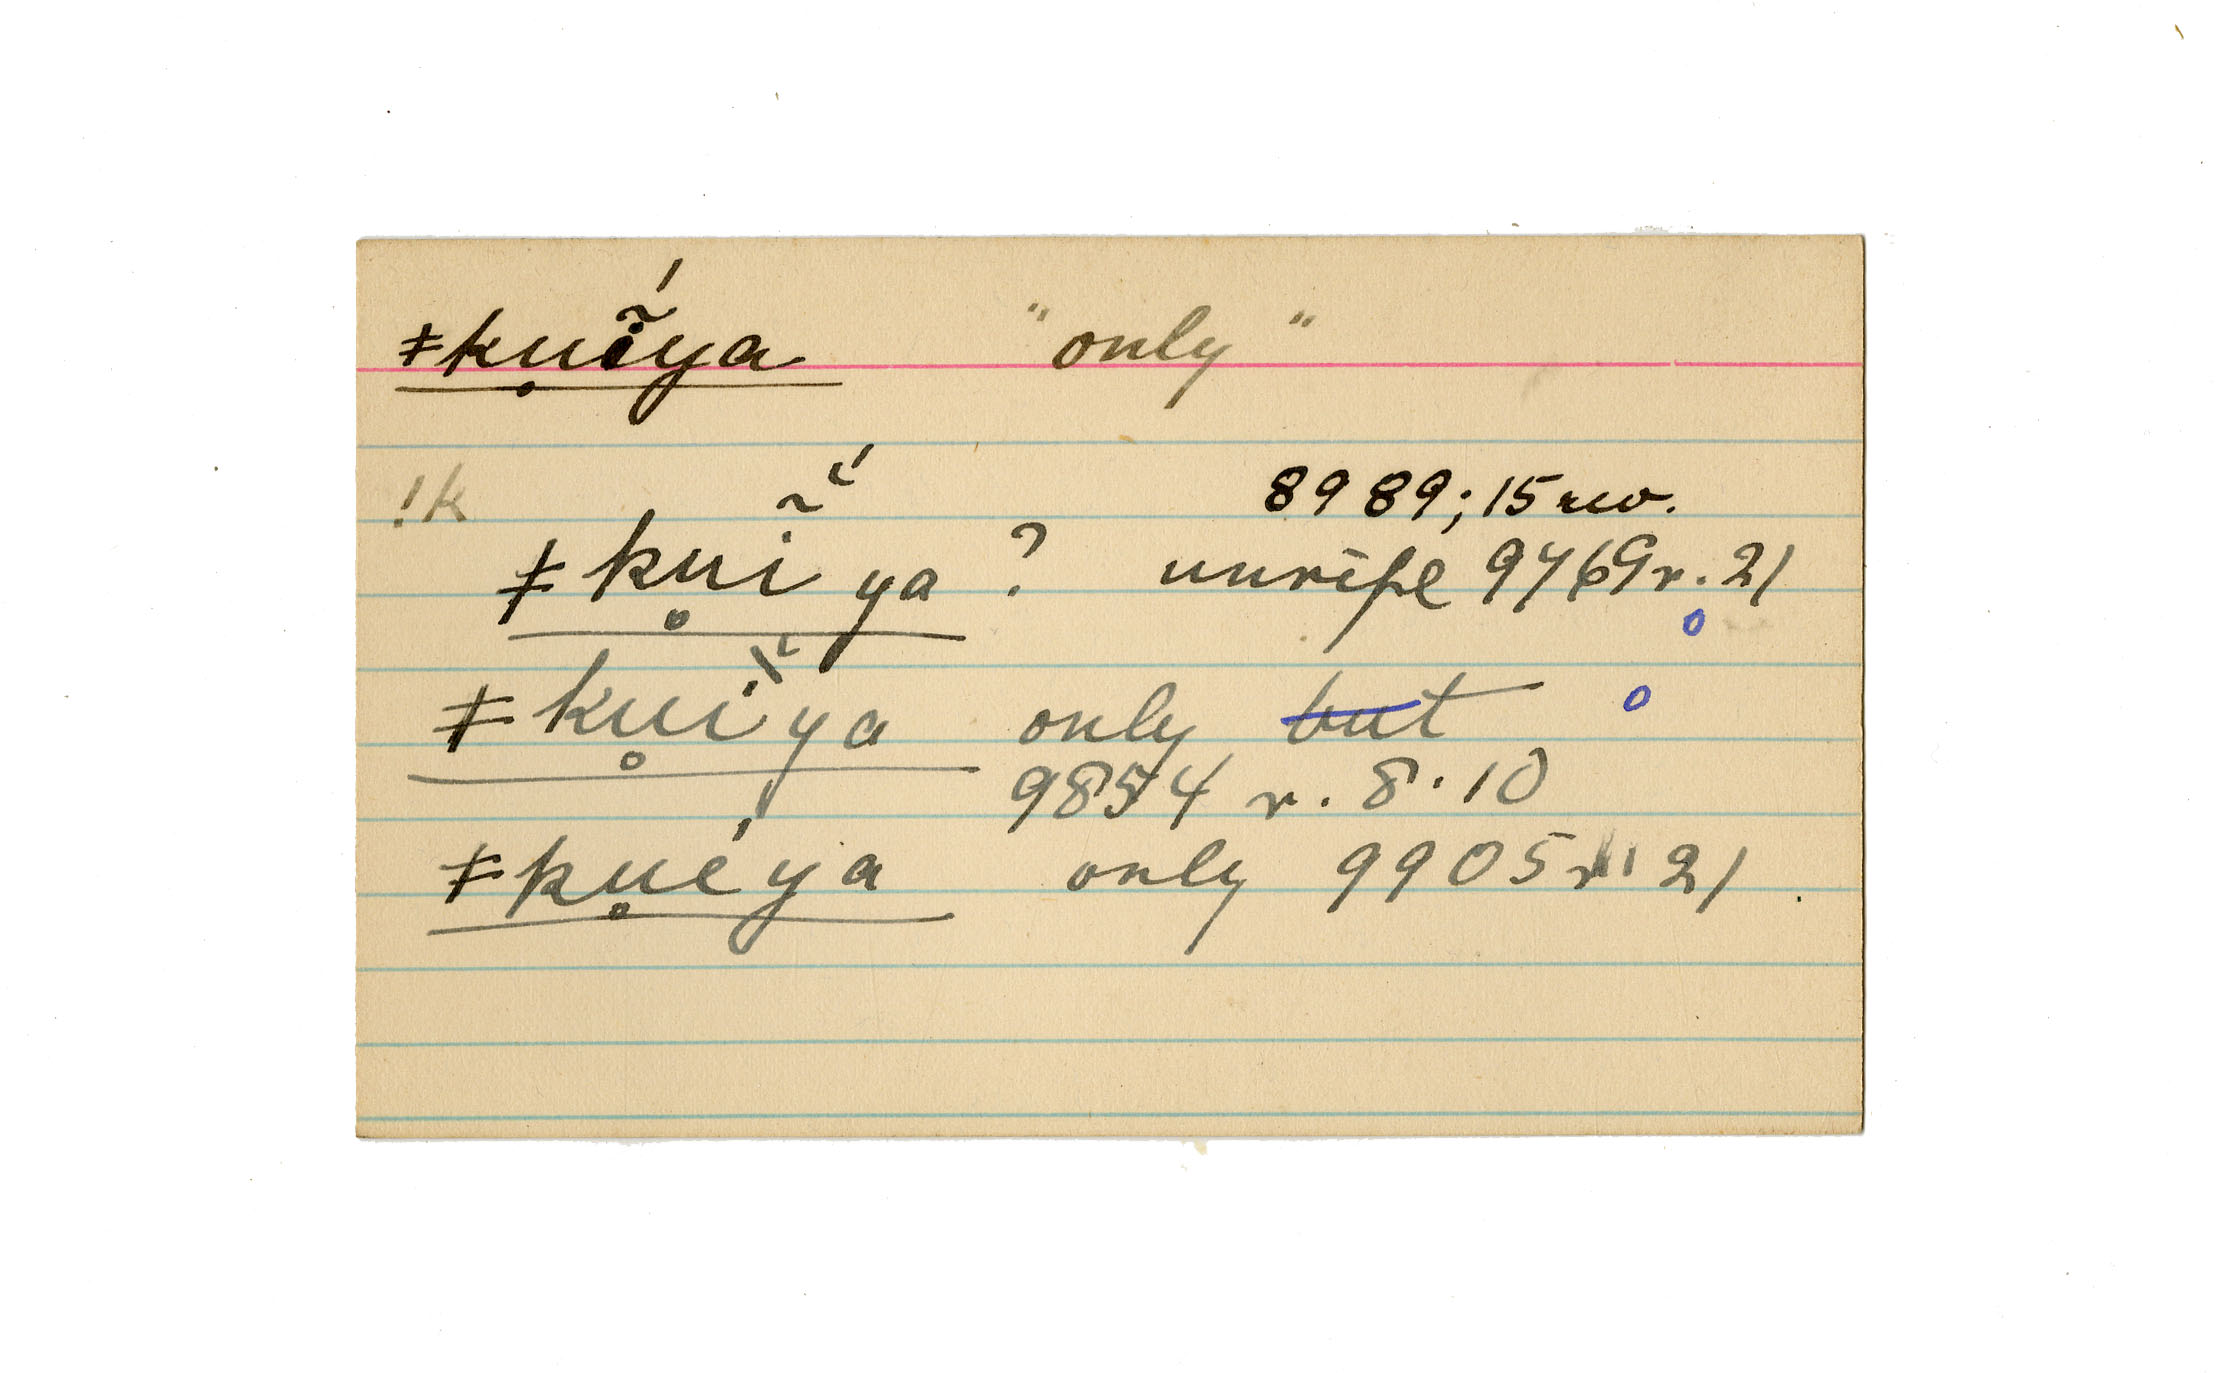 ǂku̥ĩ́ya "only"
8989; 15 rev.
!k
ǂku̥ĩ̆́ ya ? unripe 9769 r. 21
ǂku̥ĭ̀ya only but
9854 r. 8.10
ǂku̥éya only 9905 r. 21